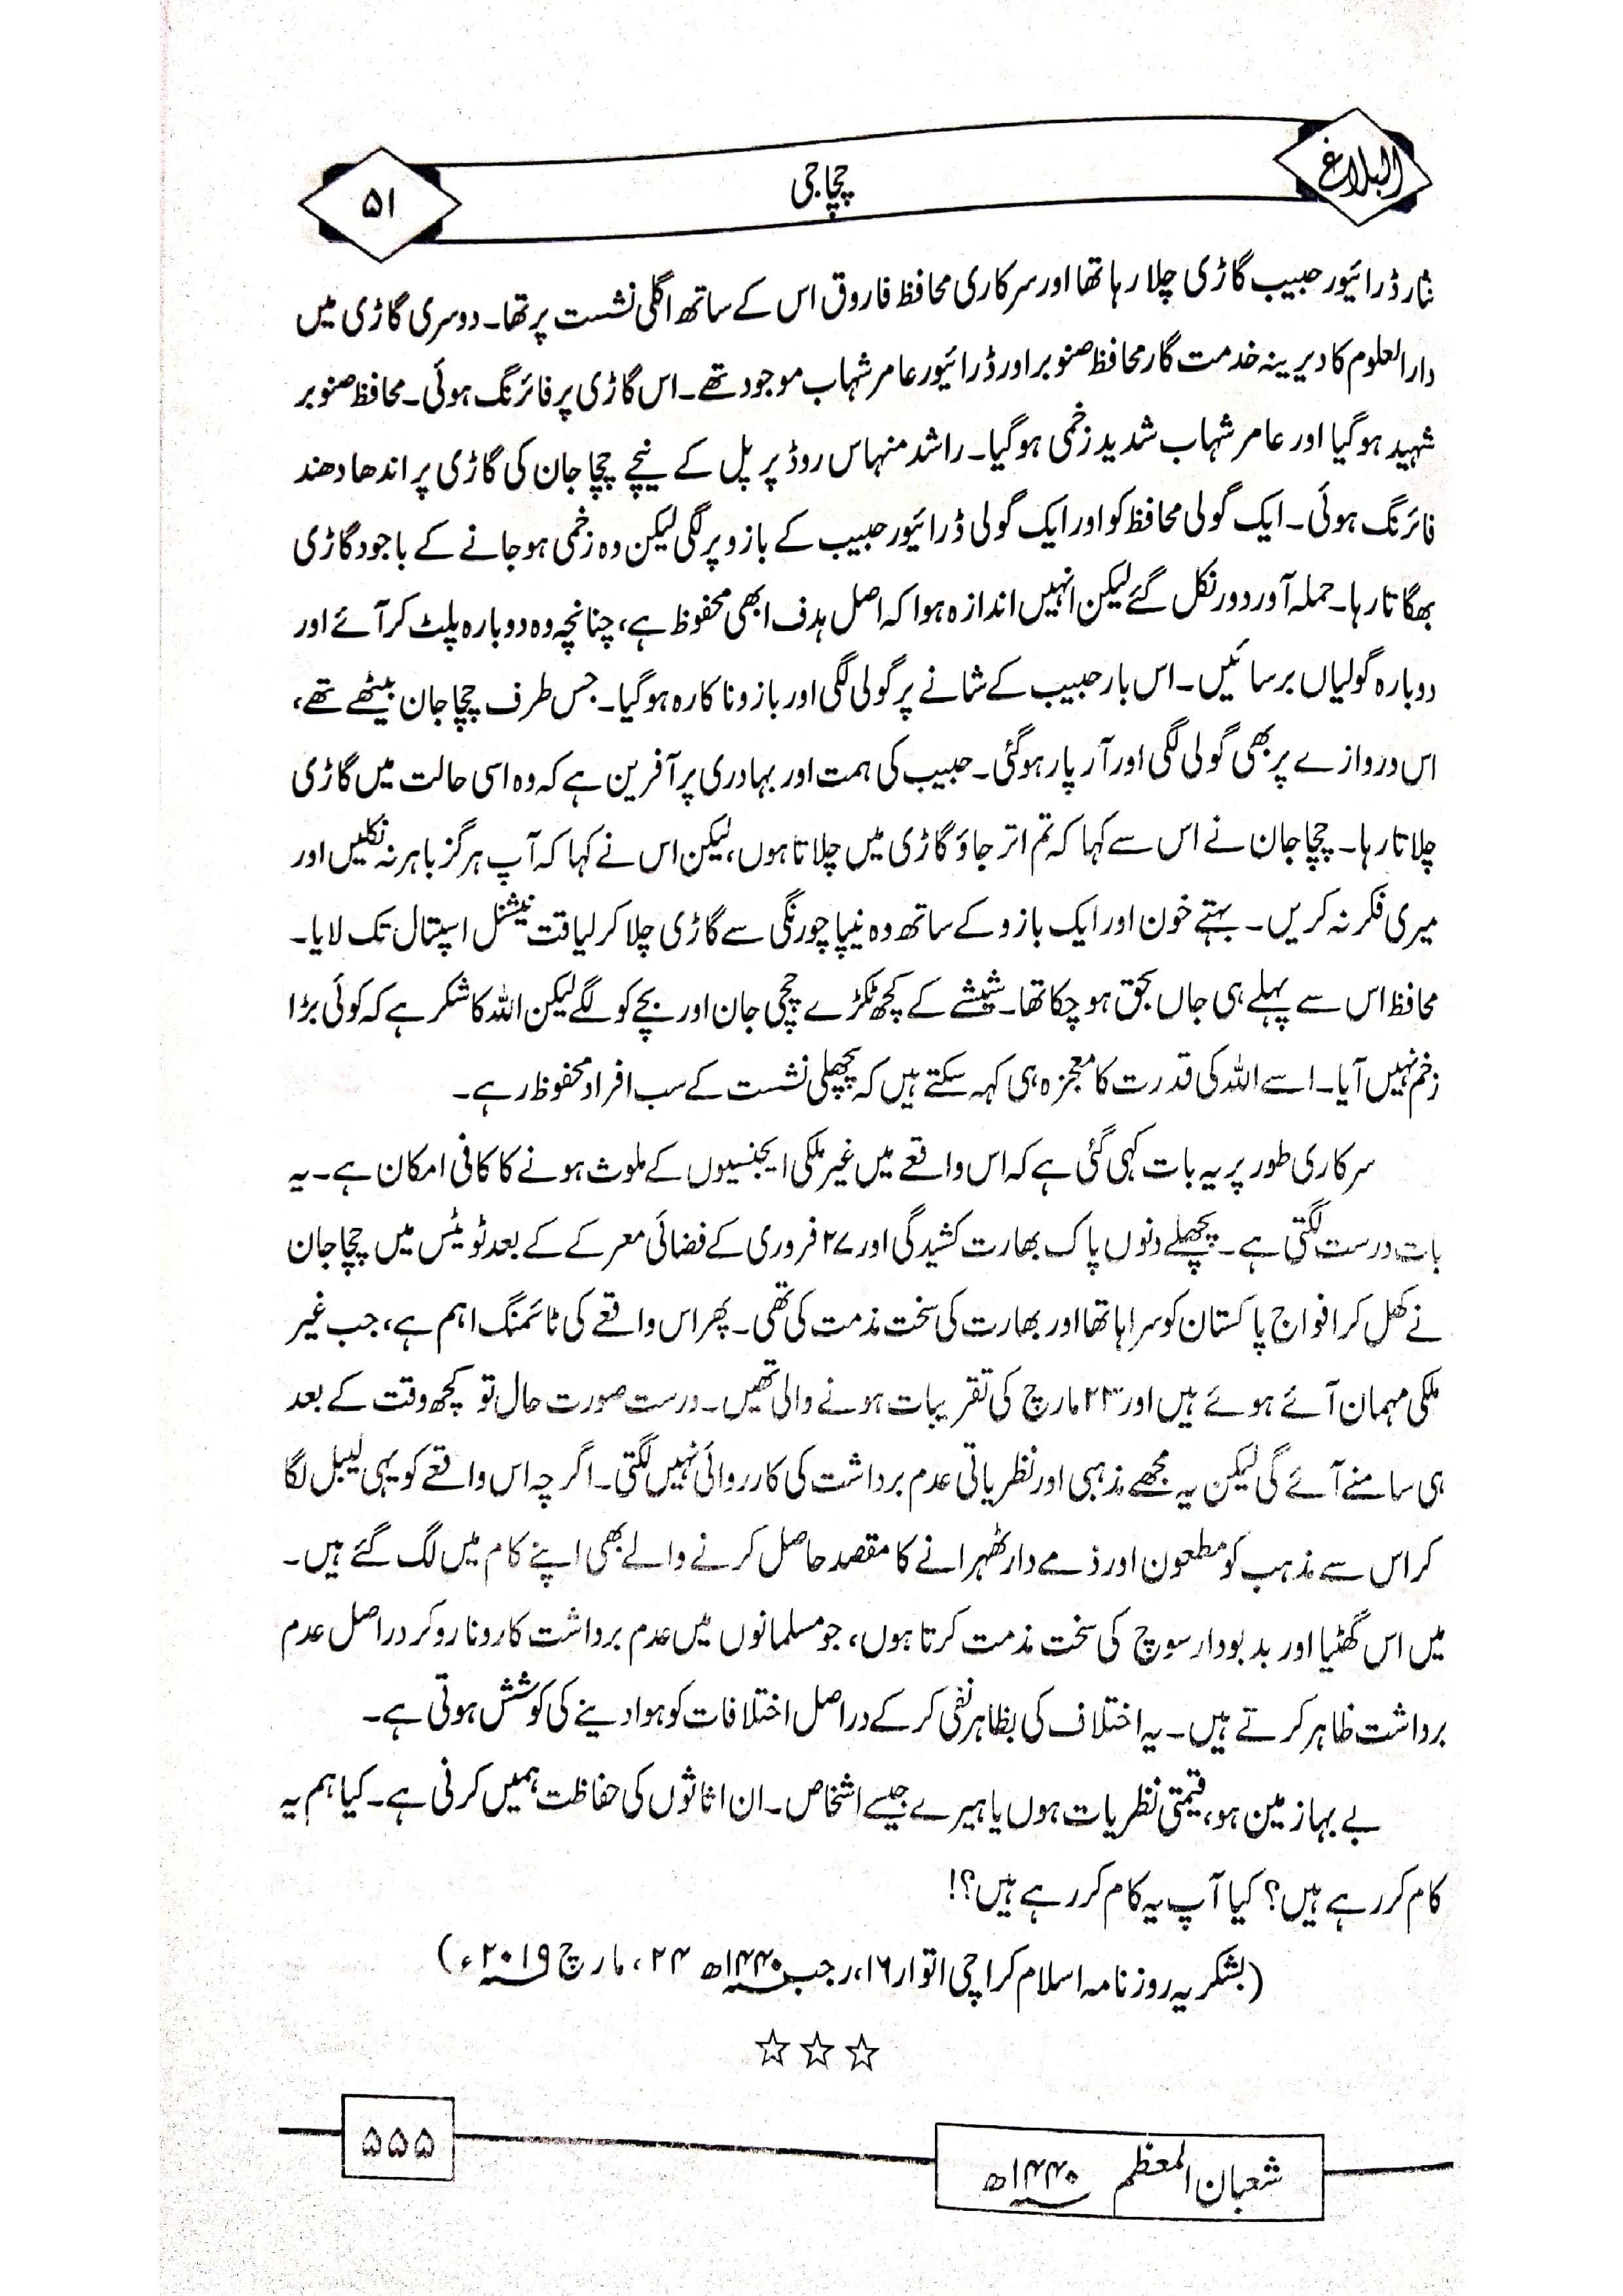 البلاغ
چچا جی
۵۱
نثار ڈرائیور حبیب گاڑی چلا رہا تھا اور سرکاری محافظ فاروق اس کے ساتھ اگلی نشست پر تھا۔ دوسری گاڑی میں
دارالعلوم کا دیرینہ خدمت گار محافظ صنوبر اور ڈرائیور عامر شہاب موجود تھے۔ اس گاڑی پر فائرنگ ہوئی۔ محافظ صنوبر
شہید ہو گیا اور عامر شہاب شدید زخمی ہو گیا۔ راشد منہاس روڈ پر پل کے نیچے چچا جان کی گاڑی پر اندھا دھند
فائرنگ ہوئی۔ ایک گولی محافظ کو اور ایک گولی ڈرائیور حبیب کے بازو پر لگی لیکن وہ زخمی ہو جانے کے باجود گاڑی
بھگاتا رہا۔ حملہ آور دور نکل گئے لیکن انہیں اندازہ ہوا کہ اصل ہدف ابھی محفوظ ہے، چنانچہ وہ دوبارہ پلٹ کر آئے اور
دوبارہ گولیاں برسائیں۔ اس بار حبیب کے شانے پر گولی لگی اور بازو ناکارہ ہو گیا۔ جس طرف چچا جان بیٹھے تھے،
اس دروازے پر بھی گولی لگی اور آر پار ہو گئی۔ حبیب کی ہمت اور بہادری پر آفرین ہے کہ وہ اسی حالت میں گاڑی
چلاتا رہا۔ چچا جان نے اس سے کہا کہ تم اتر جاؤ گاڑی میں چلاتا ہوں، لیکن اس نے کہا کہ آپ ہرگز باہر نہ نکلیں اور
میری فکر نہ کریں۔ بہتے خون اور ایک بازو کے ساتھ وہ نیپا چورنگی سے گاڑی چلا کر لیاقت نیشنل اسپتال تک لایا۔
محافظ اس سے پہلے ہی جاں بحق ہو چکا تھا۔ شیشے کے کچھ ٹکڑے چچی جان اور بچے کو لگے لیکن اللہ کا شکر ہے کہ کوئی بڑا
زخم نہیں آیا۔ اسے اللہ کی قدرت کا معجزہ ہی کہہ سکتے ہیں کہ پچھلی نشست کے سب افراد محفوظ رہے۔
سرکاری طور پر یہ بات کہی گئی ہے کہ اس واقعے میں غیر ملکی ایجنسیوں کے ملوث ہونے کا کافی امکان ہے۔ یہ
بات درست لگتی ہے۔ پچھلے دنوں پاک بھارت کشیدگی اور ۲۷ فروری کے فضائی معرکے کے بعد ٹویٹس میں چچا جان
نے کھل کر افواج پاکستان کو سراہا تھا اور بھارت کی سخت مذمت کی تھی۔ پھر اس واقعے کی ٹائمنگ اہم ہے، جب غیر
ملکی مہمان آئے ہوئے ہیں اور ۲۳ مارچ کی تقریبات ہونے والی تھیں۔ درست صورت حال تو کچھ وقت کے بعد
ہی سامنے آئے گی لیکن یہ مجھے مذہبی اور نظریاتی عدم برداشت کی کارروائی نہیں لگتی۔ اگرچہ اس واقعے کو یہی لیبل لگا
کر اس سے مذہب کو مطعون اور ذمے دار ٹھہرانے کا مقصد حاصل کرنے والے بھی اپنے کام میں لگ گئے ہیں۔
میں اس گھٹیا اور بدبودار سوچ کی سخت مذمت کرتا ہوں، جو مسلمانوں میں عدم برداشت کا رونا رو کر دراصل عدم
برداشت ظاہر کرتے ہیں۔ یہ اختلاف کی بظاہر نفی کر کے دراصل اختلافات کو ہوا دینے کی کوشش ہوتی ہے۔
بے بہا زمین ہو، قیمتی نظریات ہوں یا ہیرے جیسے اشخاص۔ ان اثاثوں کی حفاظت ہمیں کرنی ہے۔ کیا ہم یہ
کام کر رہے ہیں؟ کیا آپ یہ کام کر رہے ہیں؟!
(بشکریہ روزنامہ اسلام کراچی اتوار ۱۶، رجب ۱۴۴۰ھ ۲۴، مارچ ۲۰۱۹ء)
☆☆☆
شعبان المعظم ۱۴۴۰ھ
۵۵۵